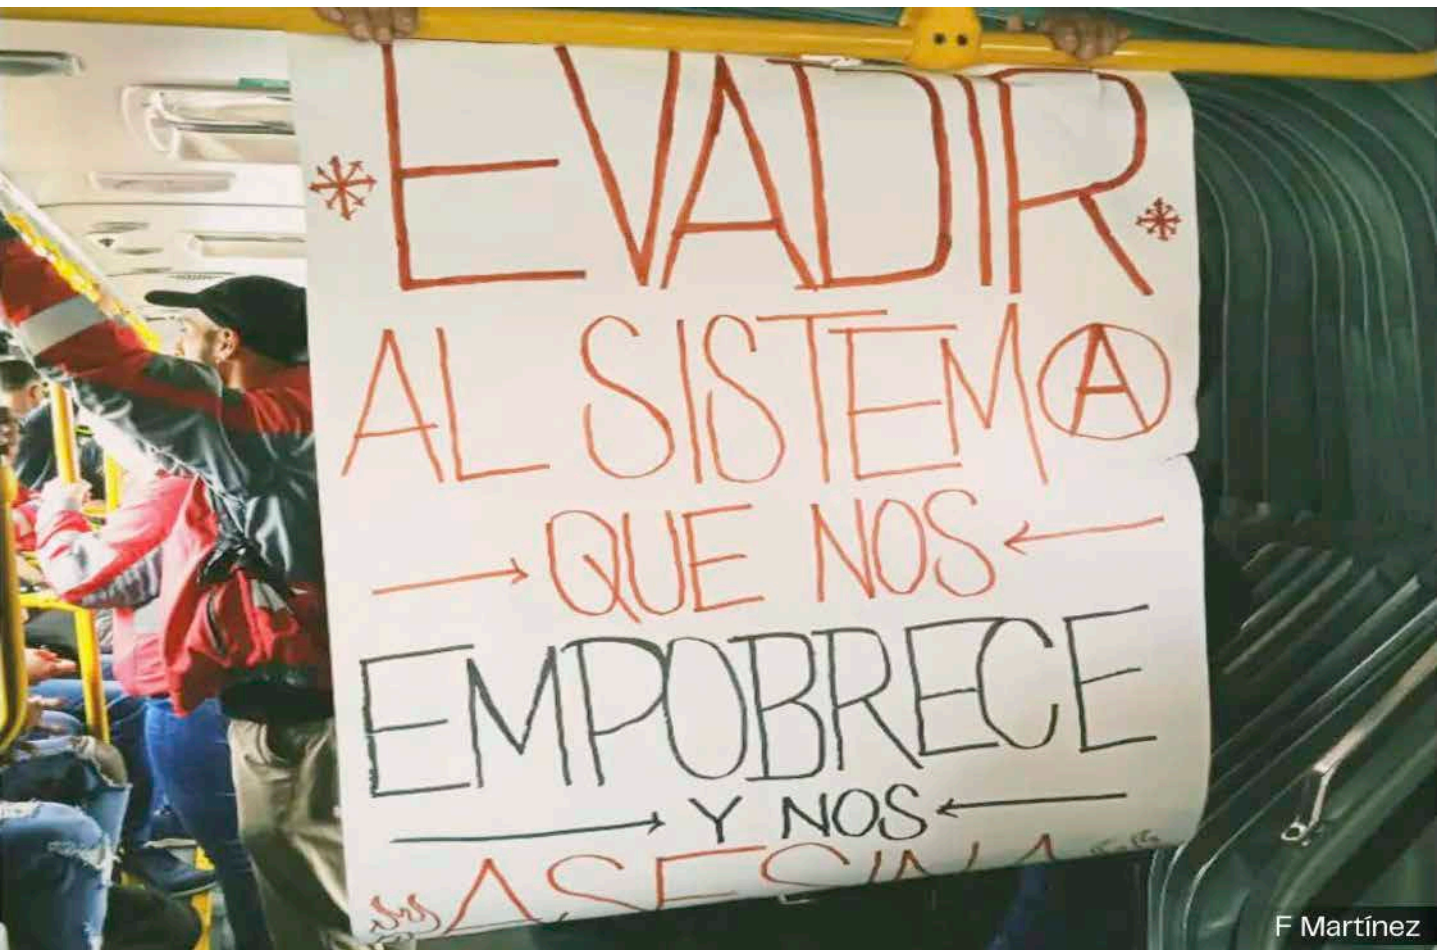 EVADIR
AL SISTEMA
QUE NOS
EMPOBRECE
Y NOS
ASESINA
F Martínez